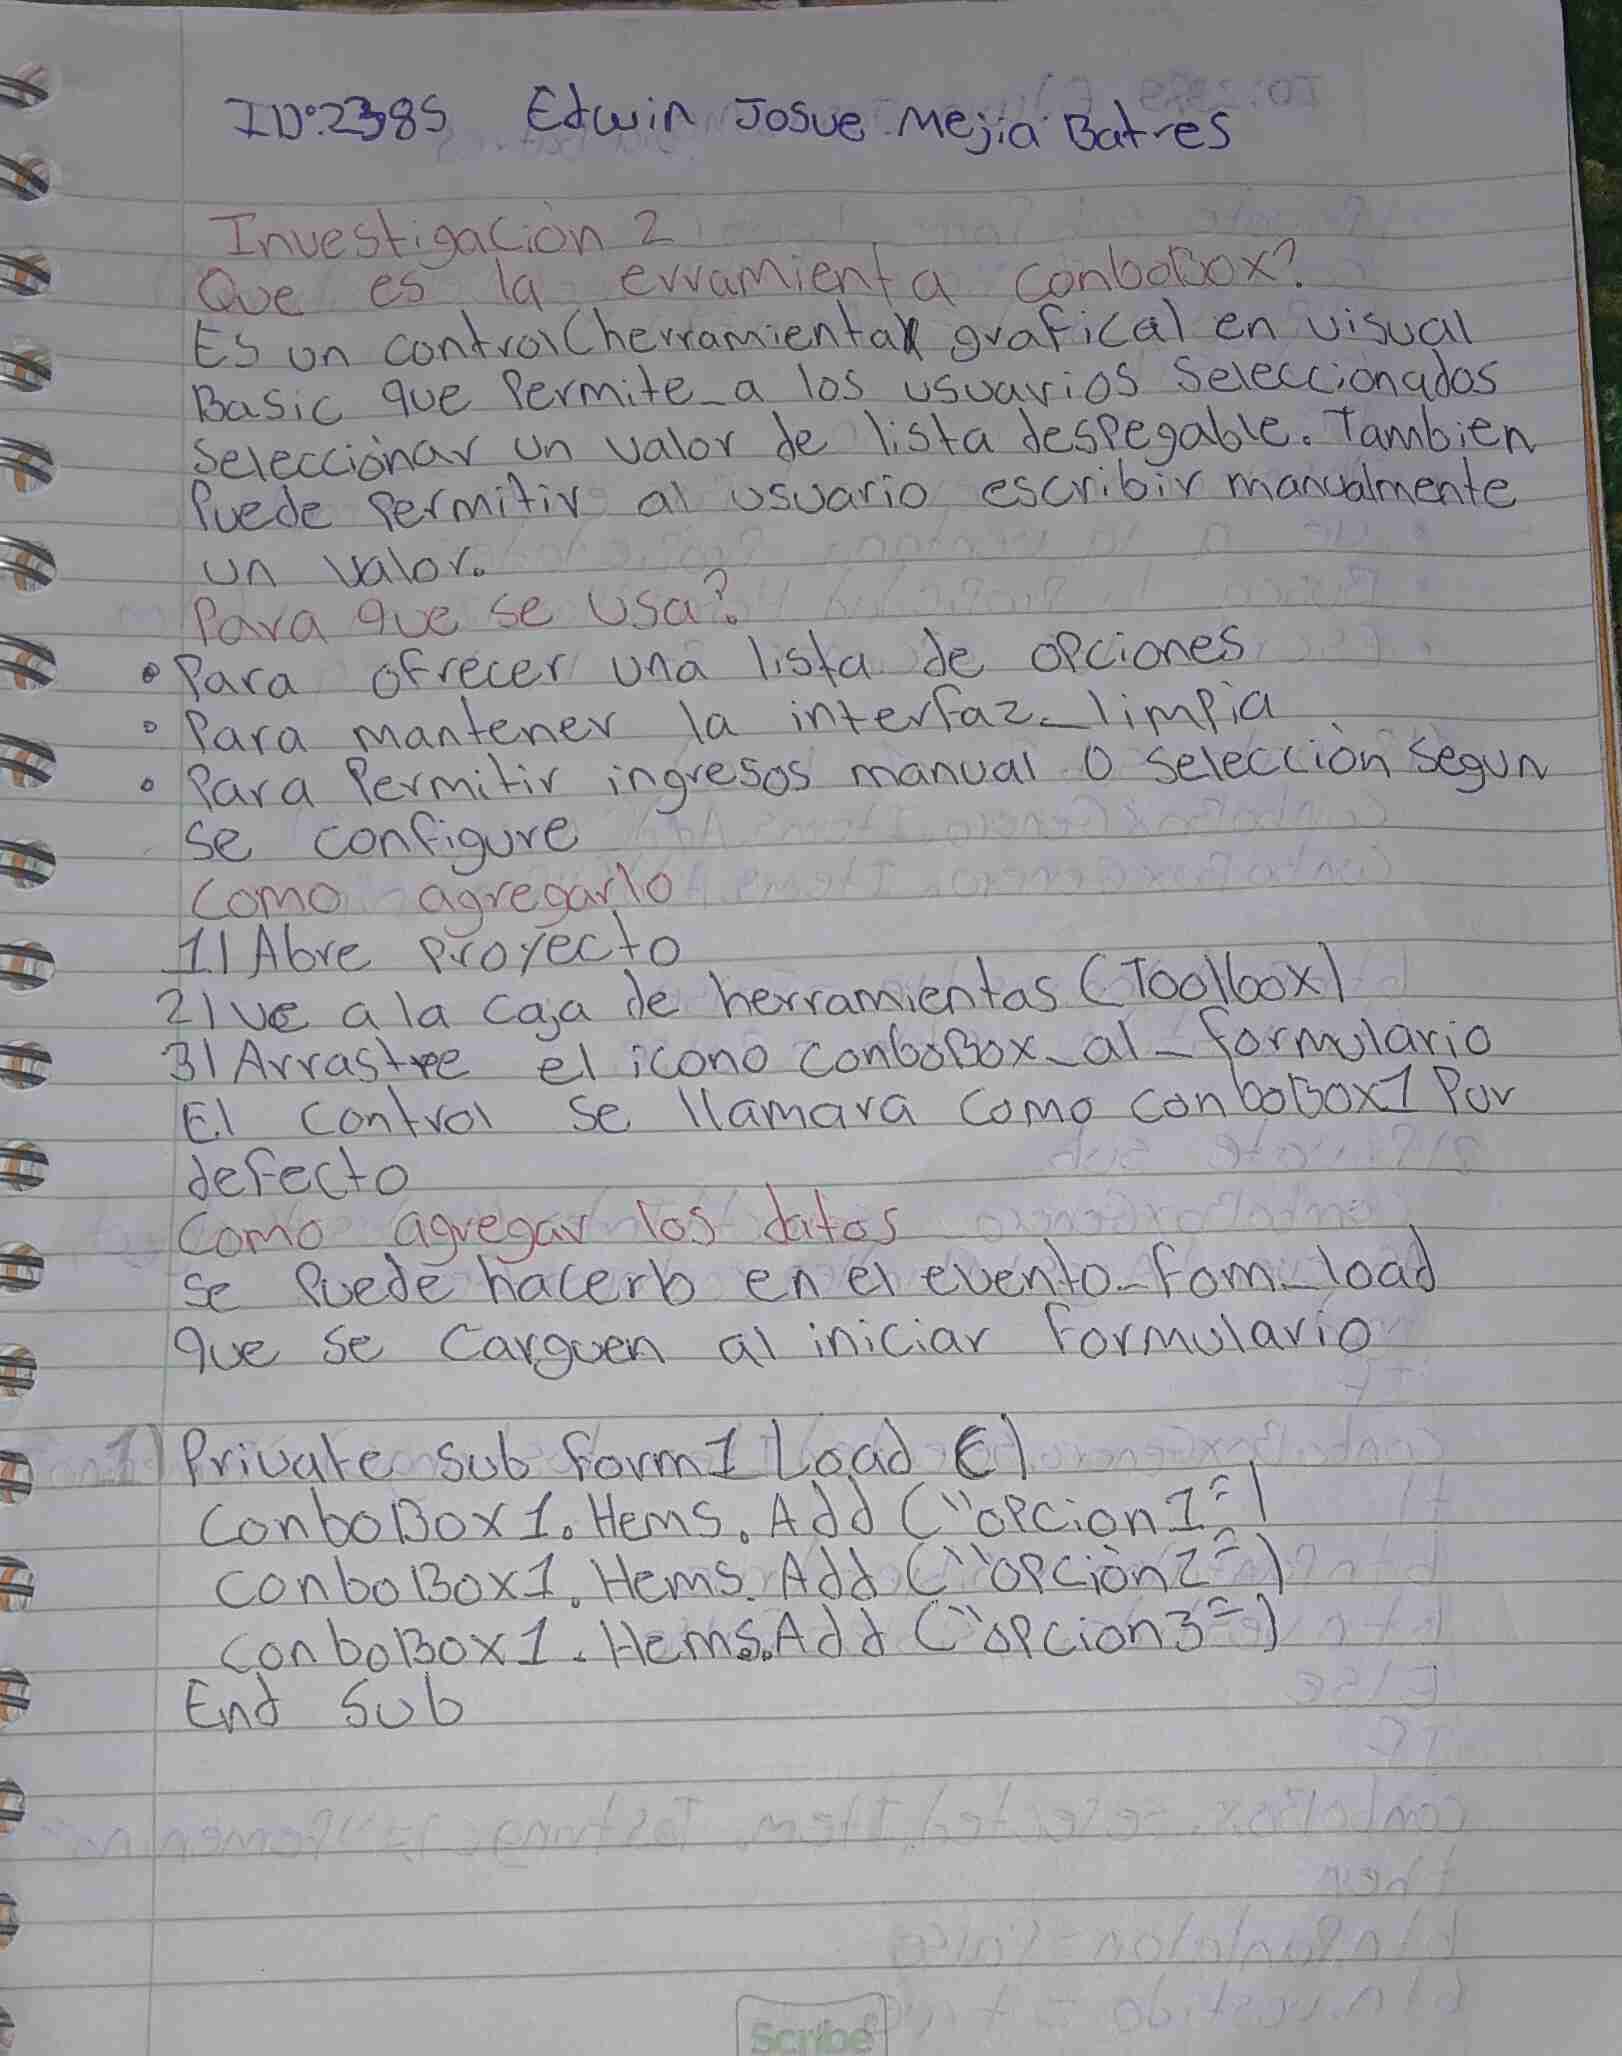 ID:2385 Edwin Josue Mejia Batres
Investigación 2
Que es la erramienta conboBox?
Es un control(herramienta) grafical en visual
Basic que Permite a los usuarios seleccionados
seleccionar un valor de lista despegable. Tambien
Puede Permitir al usuario escribir manualmente
un valor.
Para que se usa?
• Para ofrecer una lista de opciones
• Para mantener la interfaz limpia
• Para Permitir ingresos manual o selección segun
se configure
Como agregarlo
1) Abre proyecto
2) ve a la caja de herramientas (Toolbox)
3) Arrastre el icono conboBox al formulario
El control se llamara como conboBox1 Por
defecto
Como agregar los datos
se Puede hacerlo en el evento fom_load
que se carguen al iniciar formulario
1) Private sub form1 Load ()
ConboBox1.Items.Add ("opcion1")
conboBox1.Items.Add ("opcion2")
conboBox1.Items.Add ("opcion3")
End Sub
Scribe